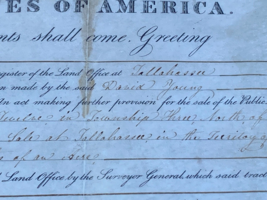 ES OF AMERICA.
nts shall come, Greeting
gister of the Land Office at Tallahassee
en made by the said David Young
An act making further provision for the sale of the Public
in Township three north of
Sale at Tallahassee in the Territory of
of an Acre
l Land Office by the Surveyor General, which said tract